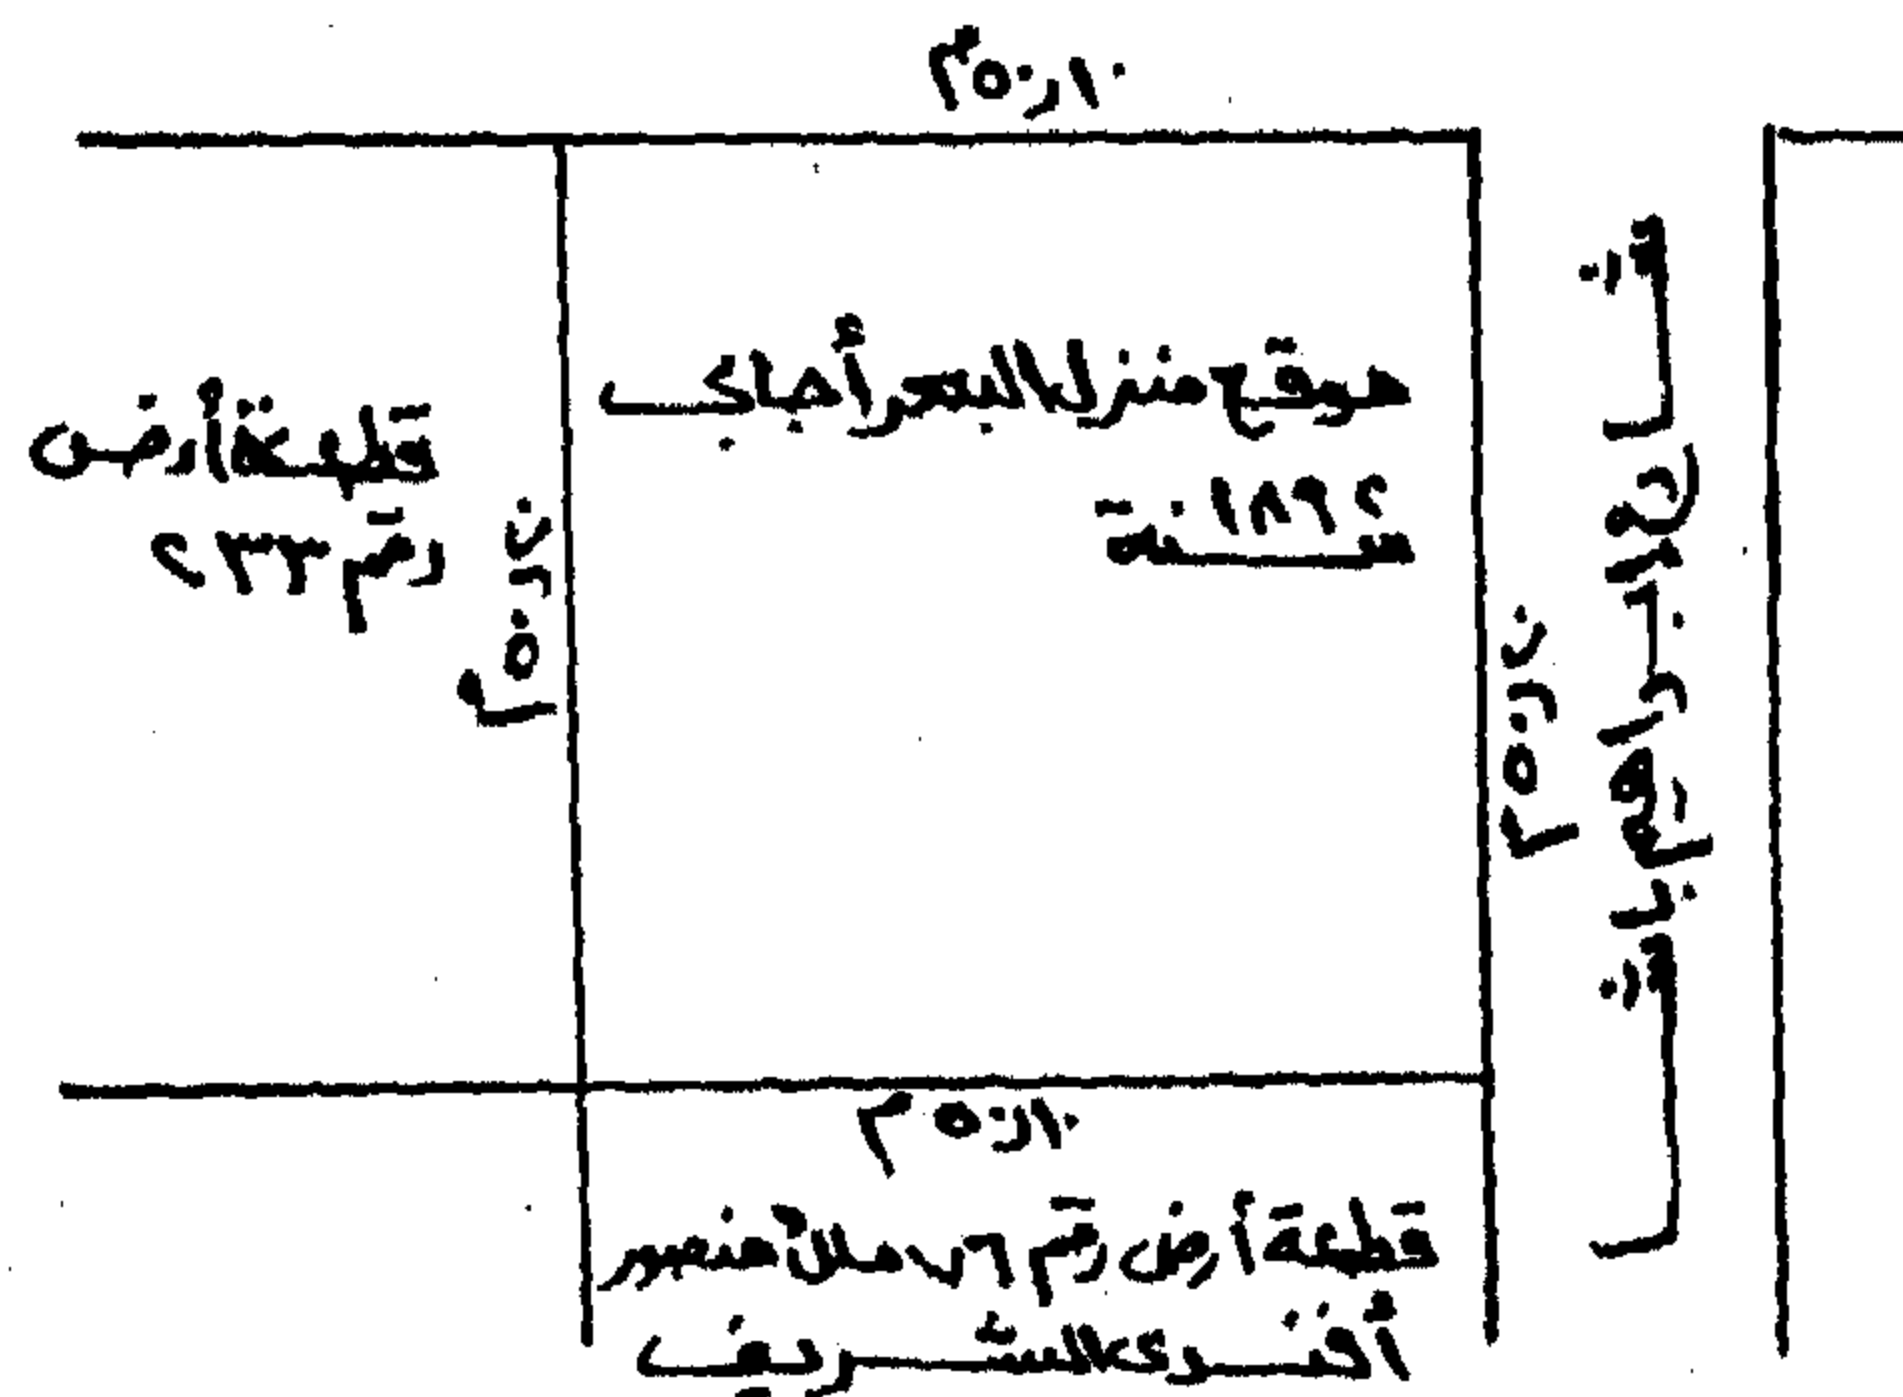 ١٠ر٥٠م
موقع منزل البعر أجابى
سنة ١٨٩٢
قطعة أرض
رقم ٢٣٣
١٠ر٥٠م
شارع
١٠ر٥٠م
قطعة أرض رقم ٧٦ ملك منصور
أفندى الشريف